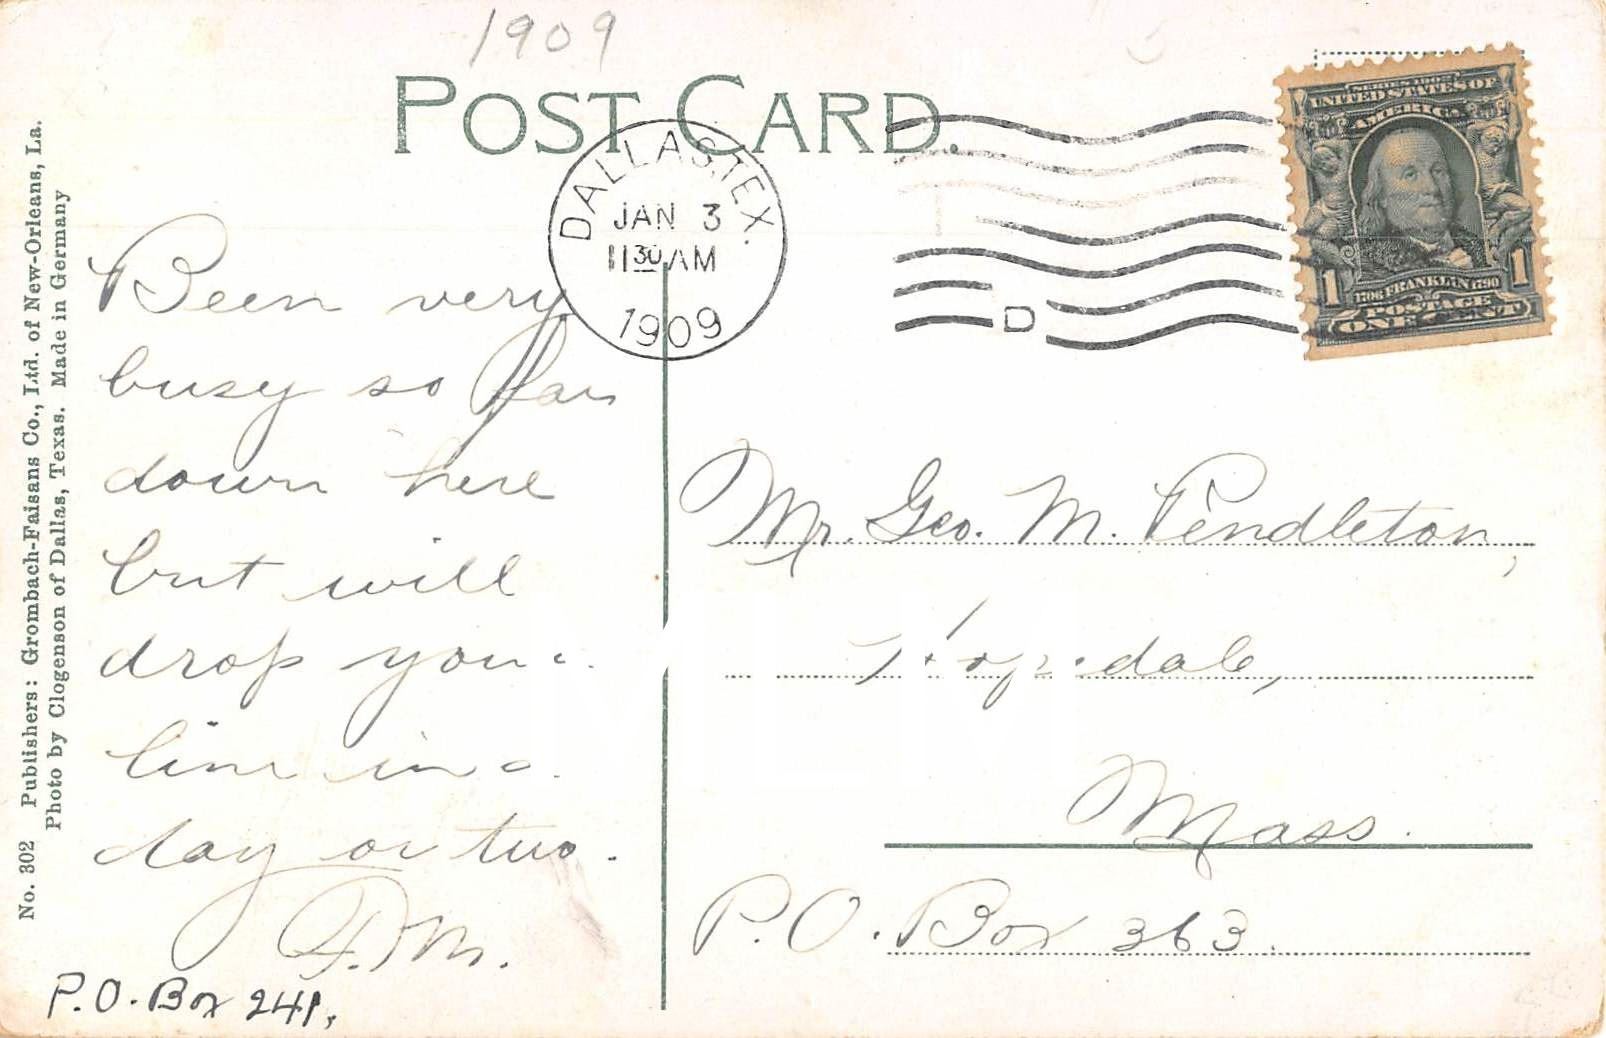 1909
POST CARD.
DALLAS, TEX.
JAN 3
11 30 AM
1909
D
UNITED STATES OF
AMERICA
1706 FRANKLIN 1790
POSTAGE
1 ONE CENT 1
No. 302 Publishers: Grombach-Faisans Co., Ltd. of New-Orleans, La.
Photo by Clogenson of Dallas, Texas. Made in Germany
Been very
busy so far
down here
but will
drop you a
line in a
day or two.
P.O. Box 241,
Mr. Geo. M. Pendleton,
Hopedale,
Mass.
P.O. Box 363.